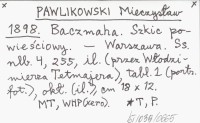 PAWLIKOWSKI Mieczysław
1898. Baczmaha. Szkic po-
wieściowy. — Warszawa. Ss.
nlb. 4, 255, il. (przez Włodzi-
mierza Tetmajera), tabl. 1 (portr.
fot.), okł. (il.), cm 18 x 12.
MT, WHP (xero). *T, P.